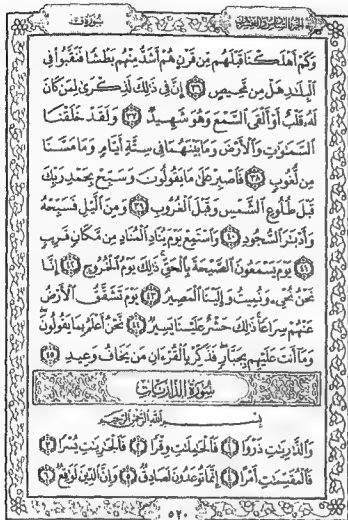 سُورَةُ قٓ
الجزء السادس والعشرون
وَكَمْ أَهْلَكْنَا قَبْلَهُم مِّن قَرْنٍ هُمْ أَشَدُّ مِنْهُم بَطْشًا فَنَقَّبُوا۟ فِى
ٱلْبِلَٰدِ هَلْ مِن مَّحِيصٍ ٣٦ إِنَّ فِى ذَٰلِكَ لَذِكْرَىٰ لِمَن كَانَ
لَهُۥ قَلْبٌ أَوْ أَلْقَى ٱلسَّمْعَ وَهُوَ شَهِيدٌ ٣٧ وَلَقَدْ خَلَقْنَا
ٱلسَّمَٰوَٰتِ وَٱلْأَرْضَ وَمَا بَيْنَهُمَا فِى سِتَّةِ أَيَّامٍ وَمَا مَسَّنَا
مِن لُّغُوبٍ ٣٨ فَٱصْبِرْ عَلَىٰ مَا يَقُولُونَ وَسَبِّحْ بِحَمْدِ رَبِّكَ
قَبْلَ طُلُوعِ ٱلشَّمْسِ وَقَبْلَ ٱلْغُرُوبِ ٣٩ وَمِنَ ٱلَّيْلِ فَسَبِّحْهُ
وَأَدْبَٰرَ ٱلسُّجُودِ ٤٠ وَٱسْتَمِعْ يَوْمَ يُنَادِ ٱلْمُنَادِ مِن مَّكَانٍ قَرِيبٍ
٤١ يَوْمَ يَسْمَعُونَ ٱلصَّيْحَةَ بِٱلْحَقِّ ذَٰلِكَ يَوْمُ ٱلْخُرُوجِ ٤٢ إِنَّا
نَحْنُ نُحْىِۦ وَنُمِيتُ وَإِلَيْنَا ٱلْمَصِيرُ ٤٣ يَوْمَ تَشَقَّقُ ٱلْأَرْضُ
عَنْهُمْ سِرَاعًا ذَٰلِكَ حَشْرٌ عَلَيْنَا يَسِيرٌ ٤٤ نَّحْنُ أَعْلَمُ بِمَا يَقُولُونَ
وَمَآ أَنتَ عَلَيْهِم بِجَبَّارٍ فَذَكِّرْ بِٱلْقُرْءَانِ مَن يَخَافُ وَعِيدِ ٤٥
سُورَةُ الذَّارِيَاتِ
بِسْمِ ٱللَّهِ ٱلرَّحْمَٰنِ ٱلرَّحِيمِ
وَٱلذَّٰرِيَٰتِ ذَرْوًا ١ فَٱلْحَٰمِلَٰتِ وِقْرًا ٢ فَٱلْجَٰرِيَٰتِ يُسْرًا ٣
فَٱلْمُقَسِّمَٰتِ أَمْرًا ٤ إِنَّمَا تُوعَدُونَ لَصَادِقٌ ٥ وَإِنَّ ٱلدِّينَ لَوَٰقِعٌ ٦
٥٢٠